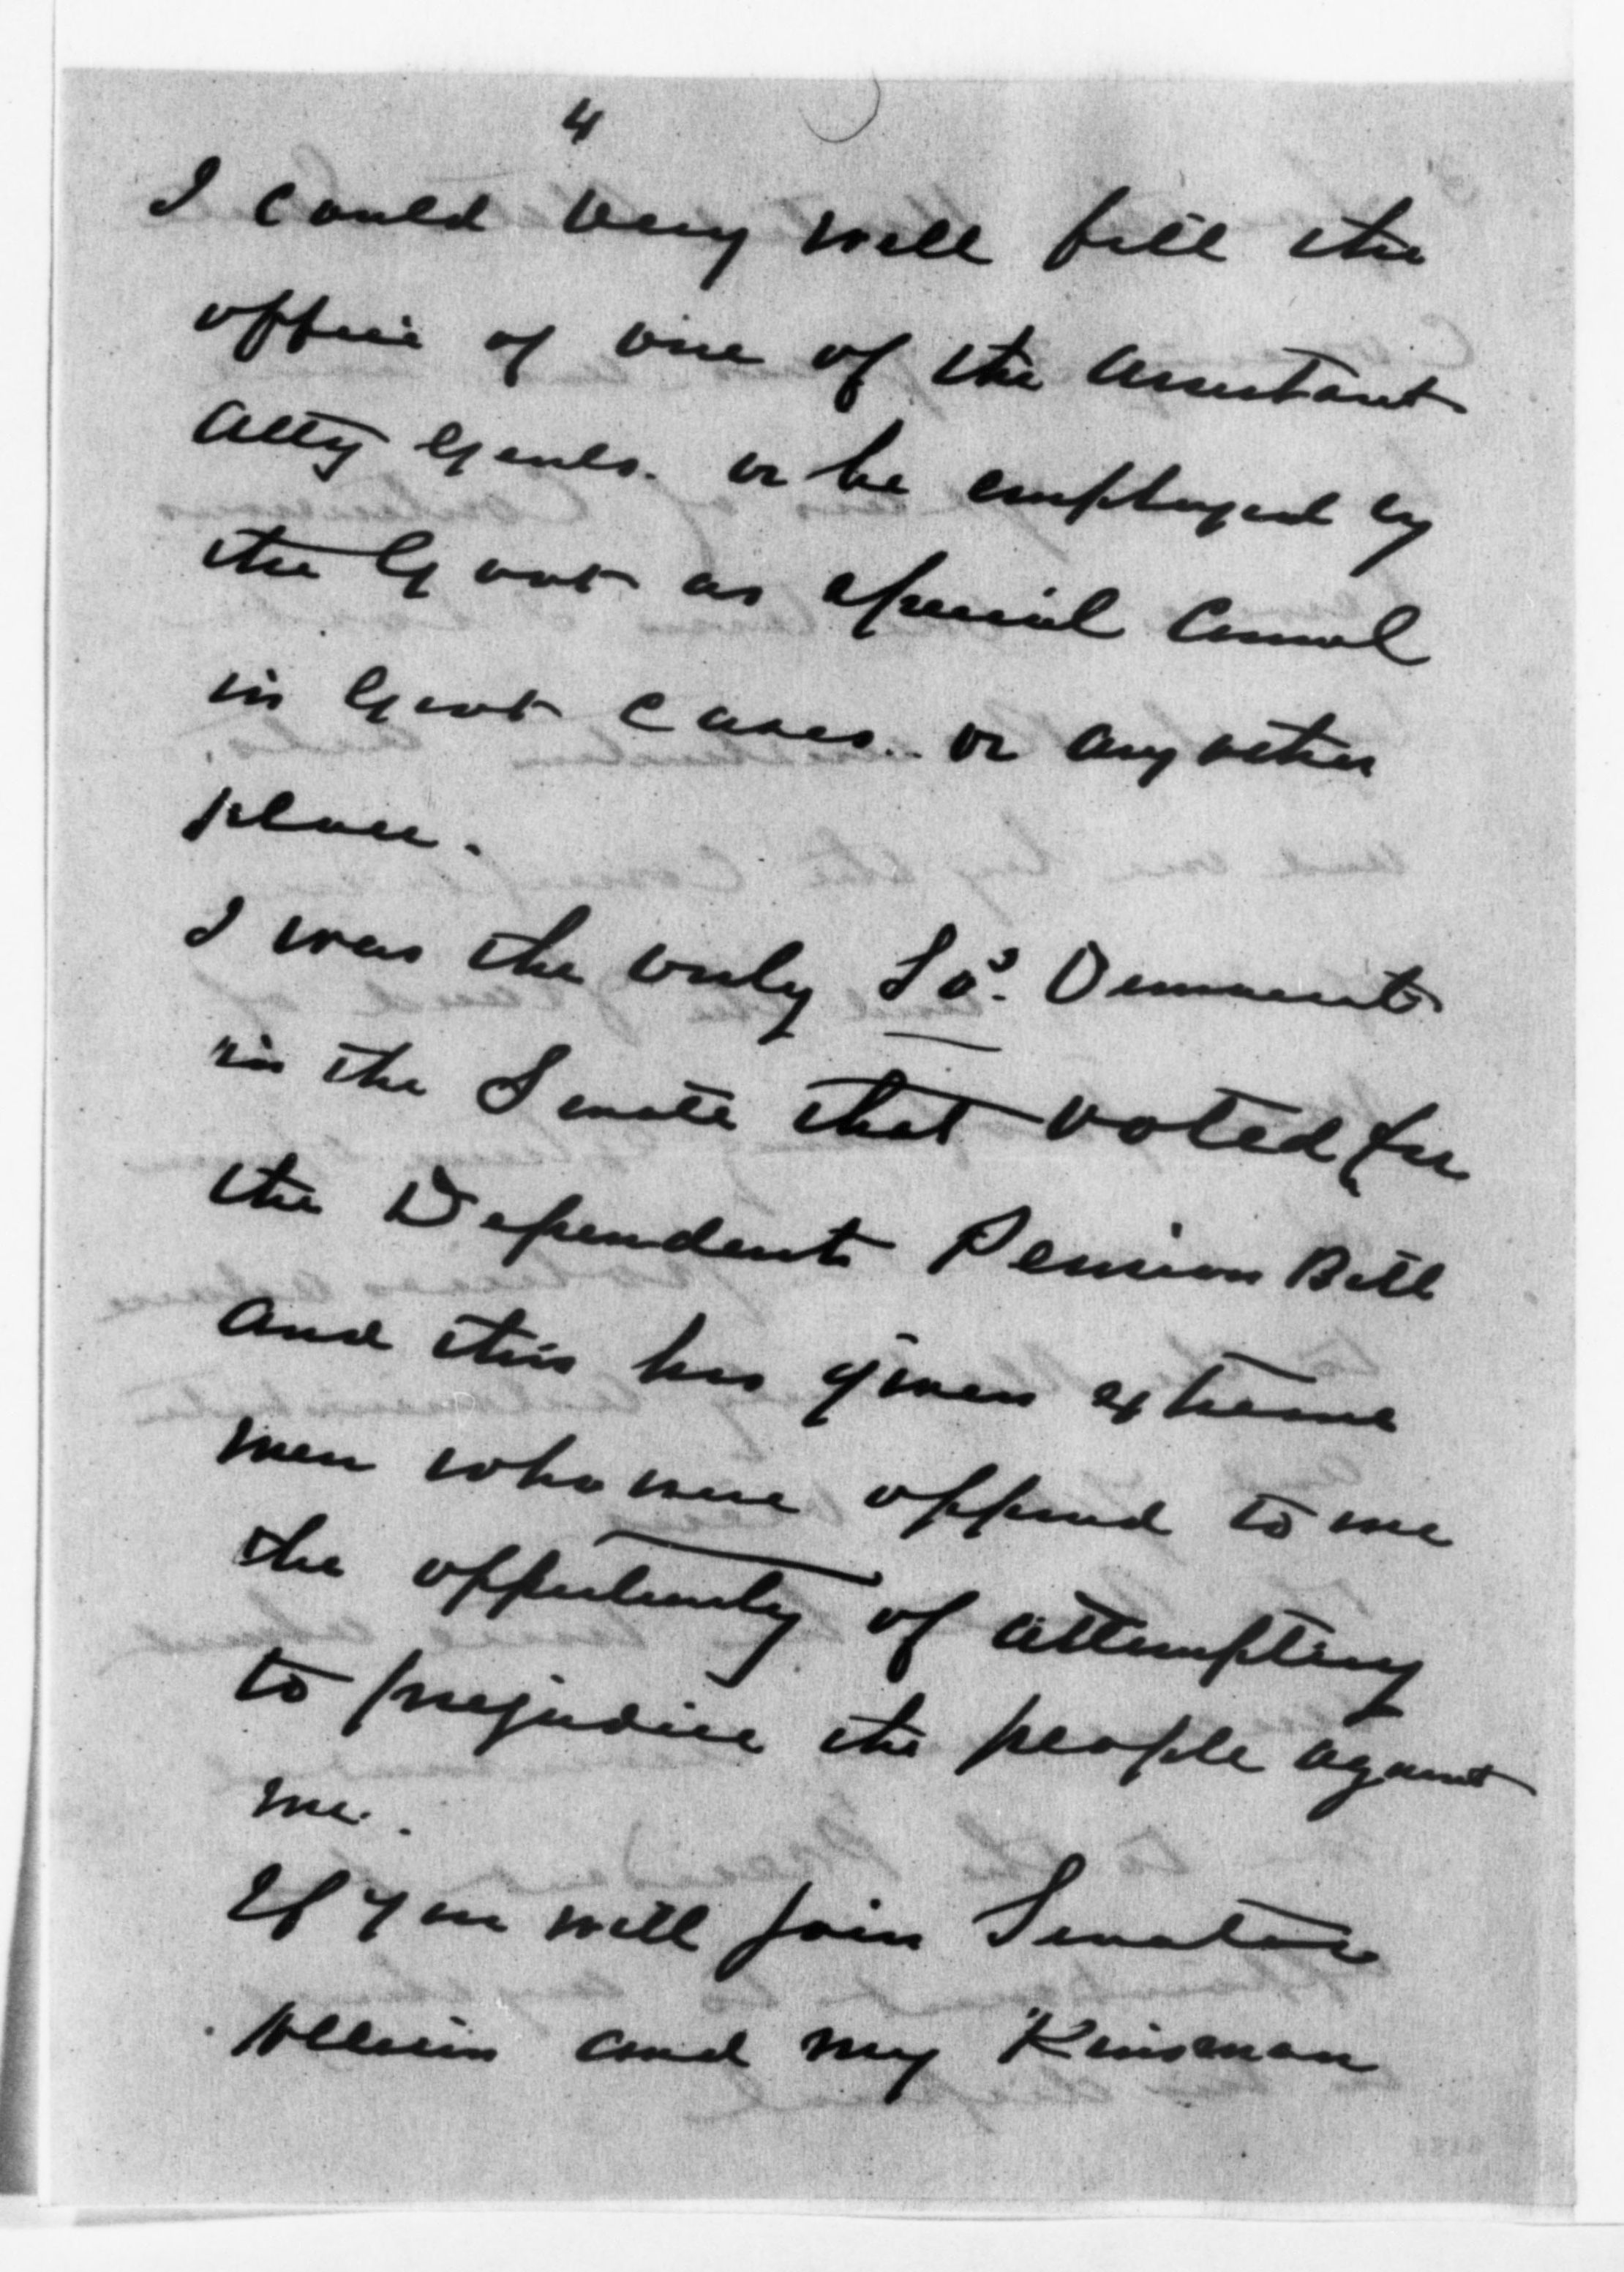 4
I could very well fill the
office of one of the assistant
Atty Genls. or be employed by
the Govt as special Counsel
in Govt cases. or any other
place.
I was the only So. Democrat
in the Senate that voted for
the Dependent Pension Bill
and this has given extreme
men who were opposed to me
the opportunity of attempting
to prejudice the people against
me.
If you will join Senators
and my Kinsman